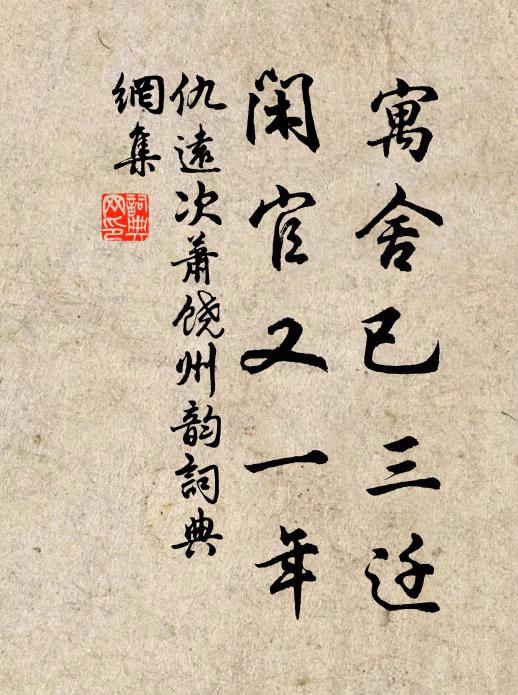 寓舍已三迁
闲官又一年
仇遠次萧饶州韵詞典
網集
詞典网印